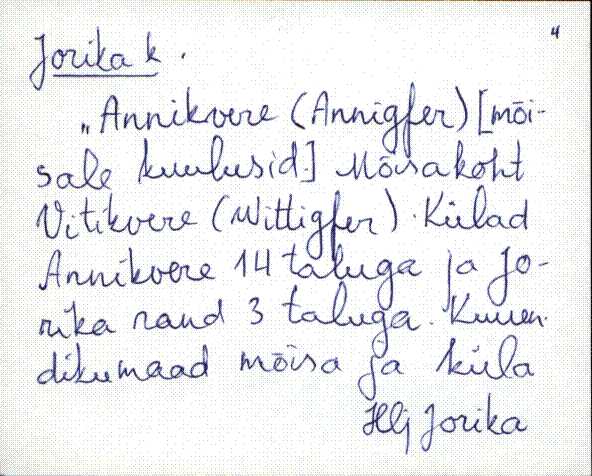 4
Jorika k.
„Annikvere (Annigfer) [mõi-
sale kuulusid.] Mõisakoht
Vitikvere (Wittigfer). Külad
Annikvere 14 taluga ja Jo-
rika rand 3 taluga. Kuuen-
dikumaad mõisa ja küla
Hlj Jorika